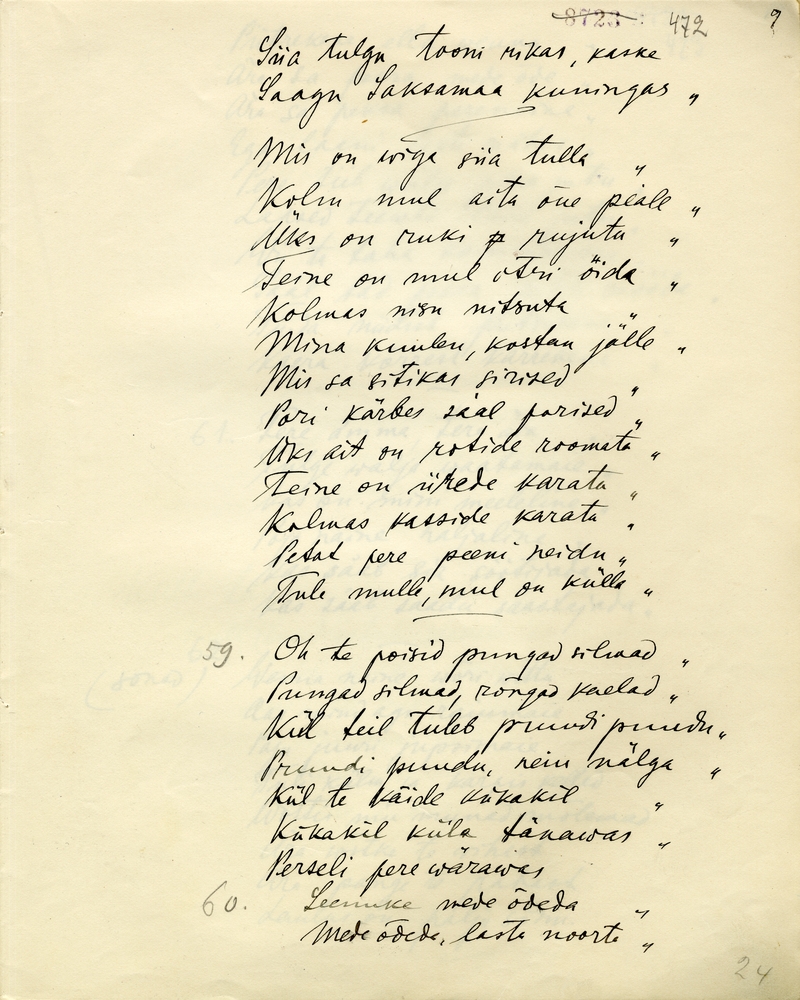 8723 : 472 9
Siia tulgu tooni rikas, kaske
Saagu Saksamaa kuningas „
Mis on wiga siia tulla „
Kolm mul aita õue peale „
Üks on ruki p rujuta „
Teine on mul otri õida „
Kolmas nisu nitsuta „
Mina kuulen, kostan jälle „
Mis sa sitikas sirised „
Pori kärbes sääl porised „
Üks ait on rotide roomata „
Teine on iirede karata „
Kolmas kasside karata „
Petat pere peeni neidu „
Tule mulle, mul on külla „
59. Oh te poisid pungad silmad „
Pungad silmad, rõngad kaelad „
Kül teil tuleb pruudi puudu „
Pruudi puudu, neiu nälga „
Kül te käide kükakil „
Kükakil küla tänawas „
Perseli pere wärawas
60. Seenuke mede õdeda „
Mede õdeda, lasta noorta „
24